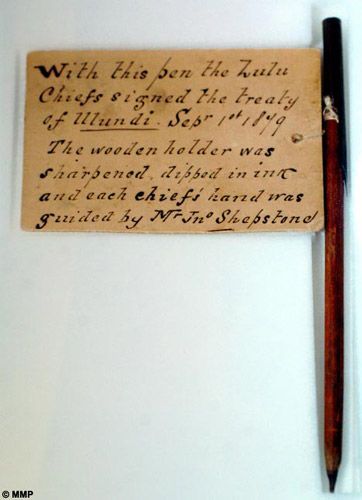 With this pen the Zulu
Chiefs signed the treaty
of Ulundi. Sepr 1st 1879
The wooden holder was
sharpened, dipped in ink
and each chiefs' hand was
guided by Mr Jno Shepstone
© MMP